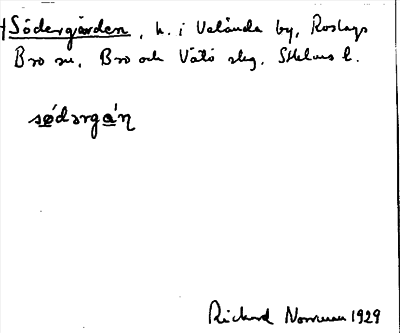 †Södergården, h. i Velånda by, Roslags
Bro sn, Bro och Vätö skg, Sthlms l.
sø´dərgà´ɳ
Richard Norrman 1929